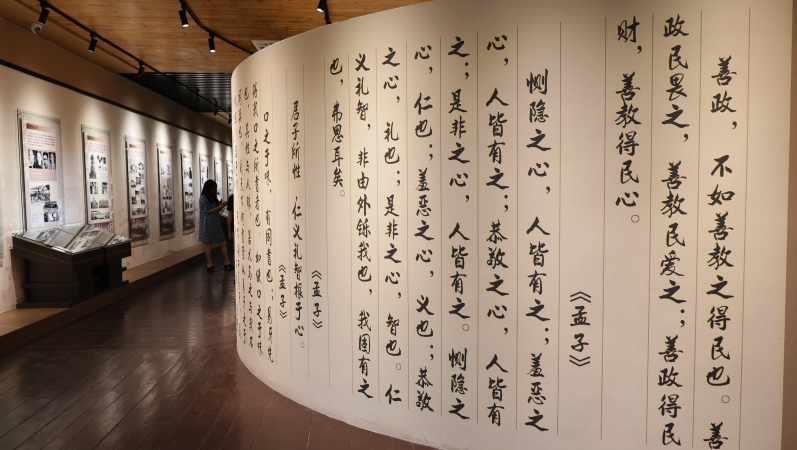 善政，不如善教之得民也。善
政民畏之，善教民爱之；善政得民
财，善教得民心。
《孟子》
恻隐之心，人皆有之；羞恶之
心，人皆有之；恭敬之心，人皆有
之；是非之心，人皆有之。恻隐之
心，仁也；羞恶之心，义也；恭敬
之心，礼也；是非之心，智也。仁
义礼智，非由外铄我也，我固有之
也，弗思耳矣。
《孟子》
君子所性 仁义礼智根于心。
《孟子》
口之于味，有同耆也；易牙先
得我口之所耆者也。如使口之于味
也，其性与人殊，若犬马之与我不